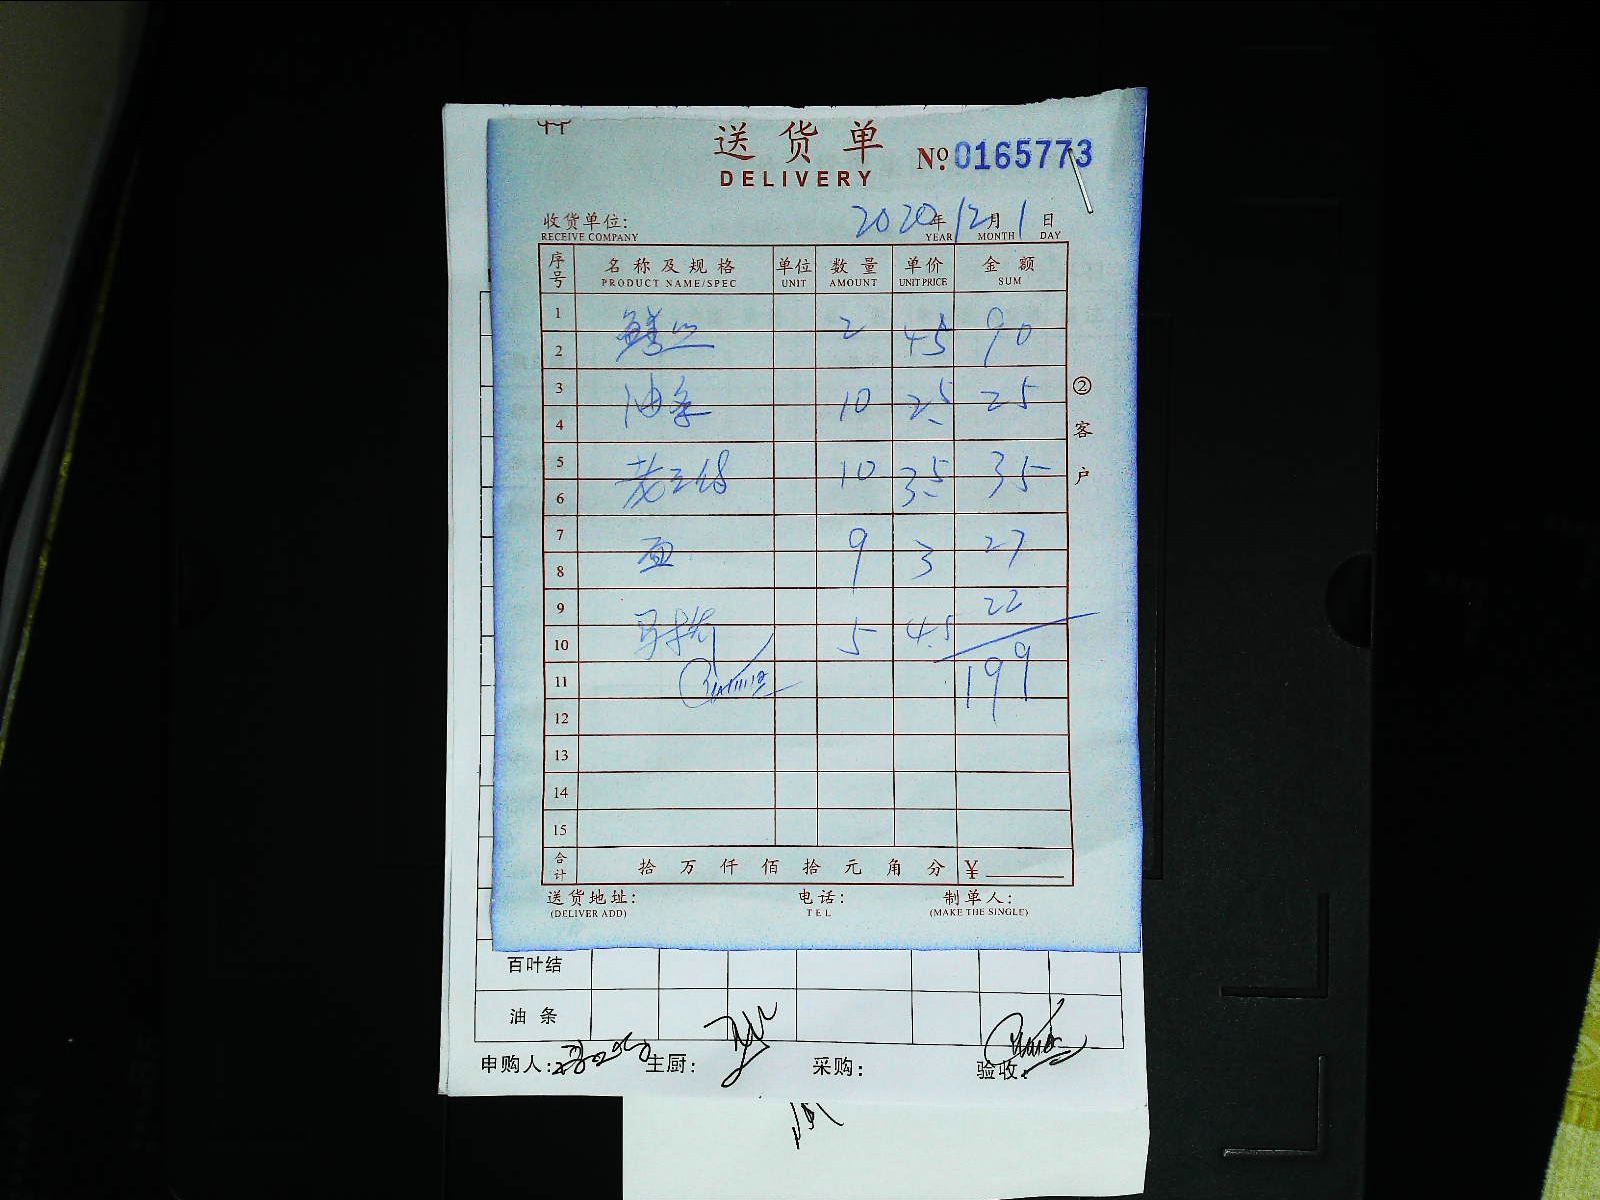 送货单 No.0165773
DELIVERY
收货单位: 2020年12月1日
RECEIVE COMPANY YEAR MONTH DAY
序号 名称及规格 单位 数量 单价 金额
PRODUCT NAME/SPEC UNIT AMOUNT UNIT PRICE SUM
1
鳝丝 2 45 90
2
3
油条 10 2.5 25
4
5
10 3.5 35
6
7
面 9 3 27
8
9 22
10 5 4.5
11 199
12
13
14
15
合计 拾万仟佰拾元角分 ¥
送货地址: 电话: 制单人:
(DELIVER ADD) TEL (MAKE THE SINGLE)
②客户
百叶结
油条
申购人: 主厨: 采购: 验收: